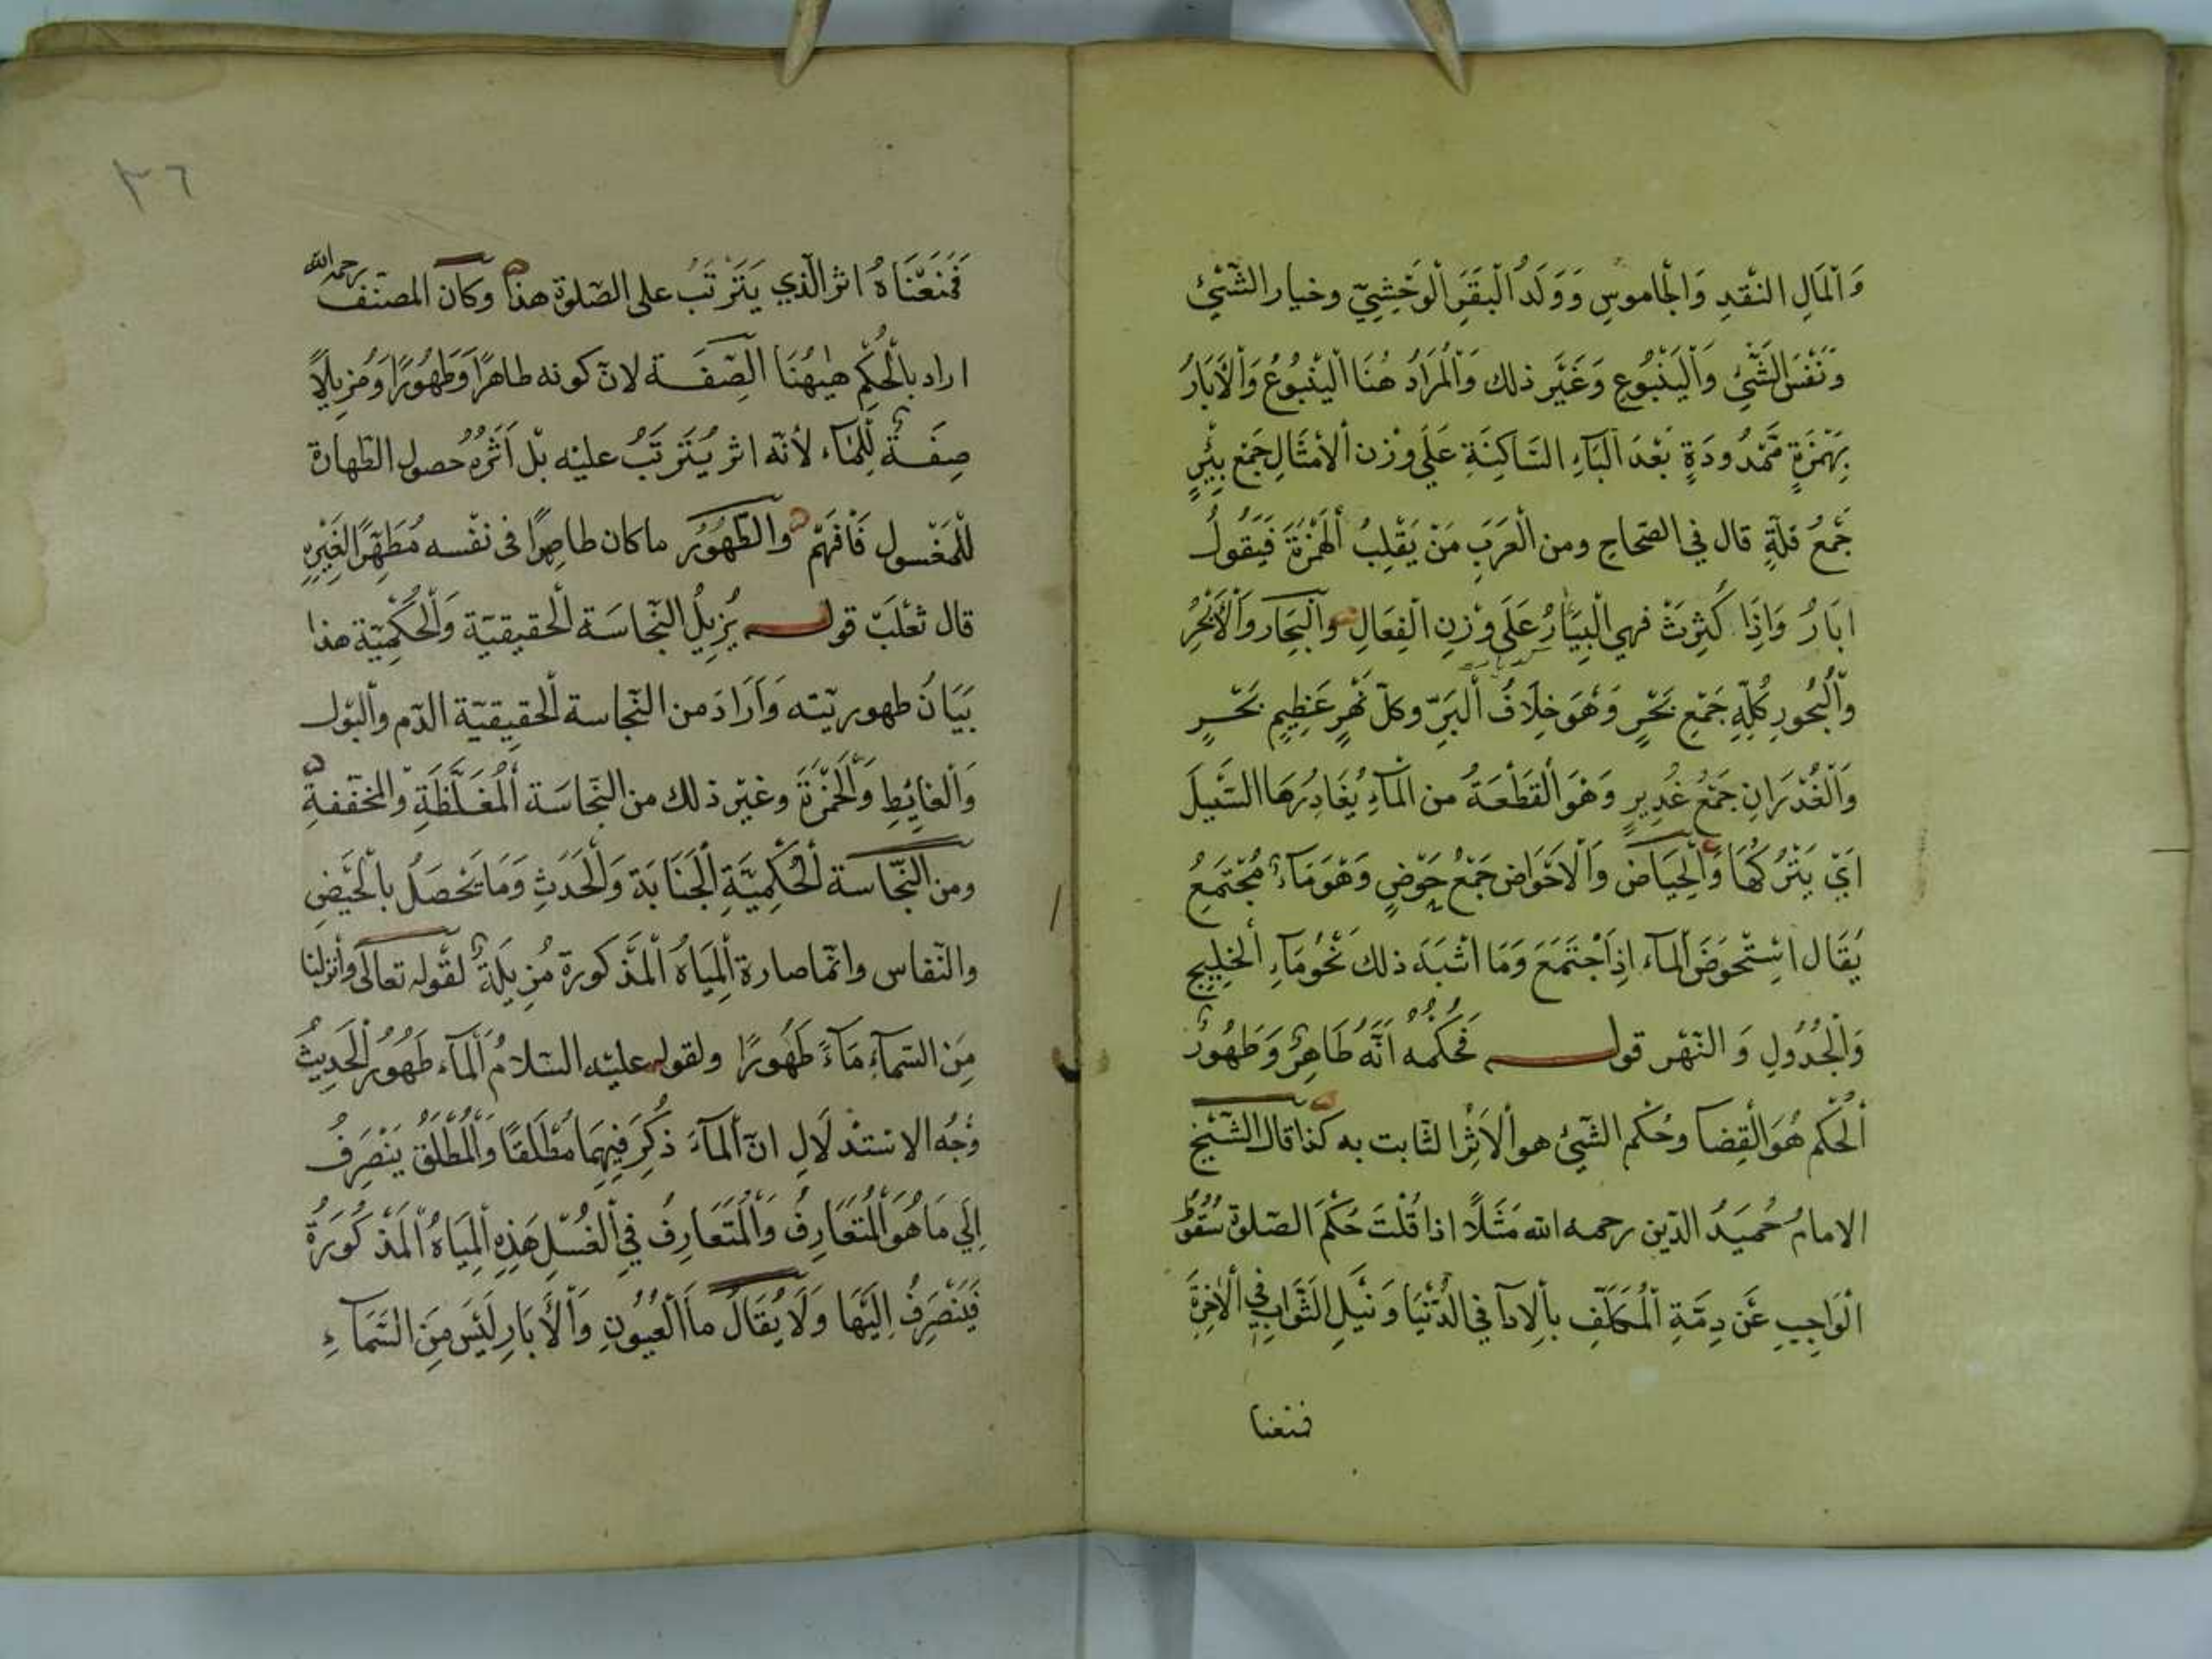 وَالْمَالِ النقدِ وَالْجاموسِ وَوَلَدُ الْبقَرِ الْوَحْشِيّ وخيار الشّئِ
وَنَفْسَ الشَّئْ وَالْيَنْبُوعِ وَغَيْر ذلك وَالْمُرَادُ هُنَا الْينْبُوعُ وَالْاَبَارُ
بِهَمْزَةٍ مَمْدُودَةٍ بَعْدَ الْبَاءِ السَّاكِنَةِ عَلَي وَزْن الْاَمْثَالِ جَمْع بِئْرٍ
جَمْعُ قلّةٍ قال في الصّحاح ومن الْعَرَبِ مَنْ يَقْلِبُ الْهَمْزَةَ فَيَقُولُ
ابَارُ وَاِذَا كَثِرَتْ فهي الْبِيَارُ عَلَي وَزْنِ الْفِعَالِ وَالْبِحَار وَالْاَبْحُرُ
وَالْبُحُورِ كُلّهِ جَمْعِ بَحْرٍ وَهُوَ خِلَافُ الْبَرِّ وكلّ نَهْرٍ عَظِيمٍ بَحْرٍ
وَالْغُدْرَانِ جَمْعُ غَدِيرٍ وَهُوَ الْقَطْعَةُ من الْمَآءِ يُغَادِرُهَا السَّيْلَ
اَيْ يَتْرُكُهَا وَالْحِيَاض وَالْاَحْوَاض جَمْعُ حَوْضٍ وَهُوَ مَآءٌ مُجْتَمِعُ
يُقَال اسْتِحْوَضَ الْمآء اِذَاجْتَمَعَ وَمَا اشْبَهَ ذلك نَحْوُ مَآءِ الْخَلِيجِ
وَالْجُدُولِ وَ النّهْر قوله فَحُكْمُهُ اَنَّهُ طَاهِرٌ وَطَهُورٌ
اَلْحُكْم هُوَ الْقِضَا وحُكْم الشّئِ هو الْاَثِرُ الثّابت به كذا قال الشّيْخ
الامامُ حُمَيدُ الدّين رحمه الله مَثَلًا اذا قُلْتَ حُكْمَ الصّلوة سُقُوطُ
الْوَاجِبِ عَنْ ذِمّةِ الْمُكَلّفِ بالْاِدآ في الدُّنْيَا وَنَيْلِ الثَّوَابِ فِي الْاٰخِرَةِ
فمنعنا
٣٦
فَمَنَعْنَاهُ اثر الّذي يَتَرَتّبُ علي الصّلوة هذا وكان المصنّف رحمه الله
اراد بالْحُكْمِ هٰيهُنَا الصِّفَة لانّ كونه طاهرًا وَطَهُورًا وَمُزِيلًا
صِفَةٌ لِلْمآء لأنّه اثر يُتَرتّبُ عليْه بَلْ اَثرُهُ حصول الطّهارة
للْمَغْسول فَافهَمْ وَالطّهُوُر ما كان طاهِرًا فى نفْسه مُطَهِّرًا لِغَيْرِهِ
قال ثعْلَبَ قوله يُزِيلُ النّجاسَة الْحقيقيّة وَالْحُكْمِيّة هذا
بَيَانُ طهوريّته وَاَرَادَ من النّجاسة الْحقِيقيّة الدّم والْبَوْل
وَالْغايِطِ وَالْخَمْرَةَ وغيْر ذلك من النّجاسَة الْمُغَلَّظَةِ والمخفّفةِ
ومن النّجاسة الْحُكْمِيَّةِ الْجَنَابَة وَالْحَدَثِ وَمَا يَحْصَلُ بالْحَيْضِ
والنّفاس وانّما صارة الْمِيَاهُ الْمَذكورة مُزِيلَةٌ لقوله تعالَى وانزلنا
مِنَ السّمآءِ مَآءً طَهُورًا ولقوله عليْه السّلامُ الْمآء طَهُورٌ الْحَدِيثُ
وَجْهُ الاسْتِدْلَالِ انّ الْمآءَ ذكِرَ فِيهِمَا مُطْلَقًا وَالْمُطْلَقُ يَنْصَرِفُ
اِلَي مَا هُوَ الْمُتَعَارِفُ وَالْمُتَعَارِفُ فِي الْغُسْلِ هَذِهِ الْمِيَاهُ الْمَذكُورَةُ
فَيَنْصَرِفُ اِلَيْهَا وَلَا يُقَالُ ماَ الْعُيُونِ وَالْأَبَارِ لَيْسَ مِنَ السّمَآءِ